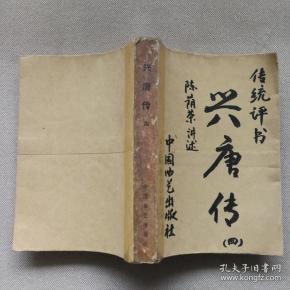 传统评书
兴唐传
(四)
陈荫荣讲述
中国曲艺出版社
兴唐传
孔夫子旧书网